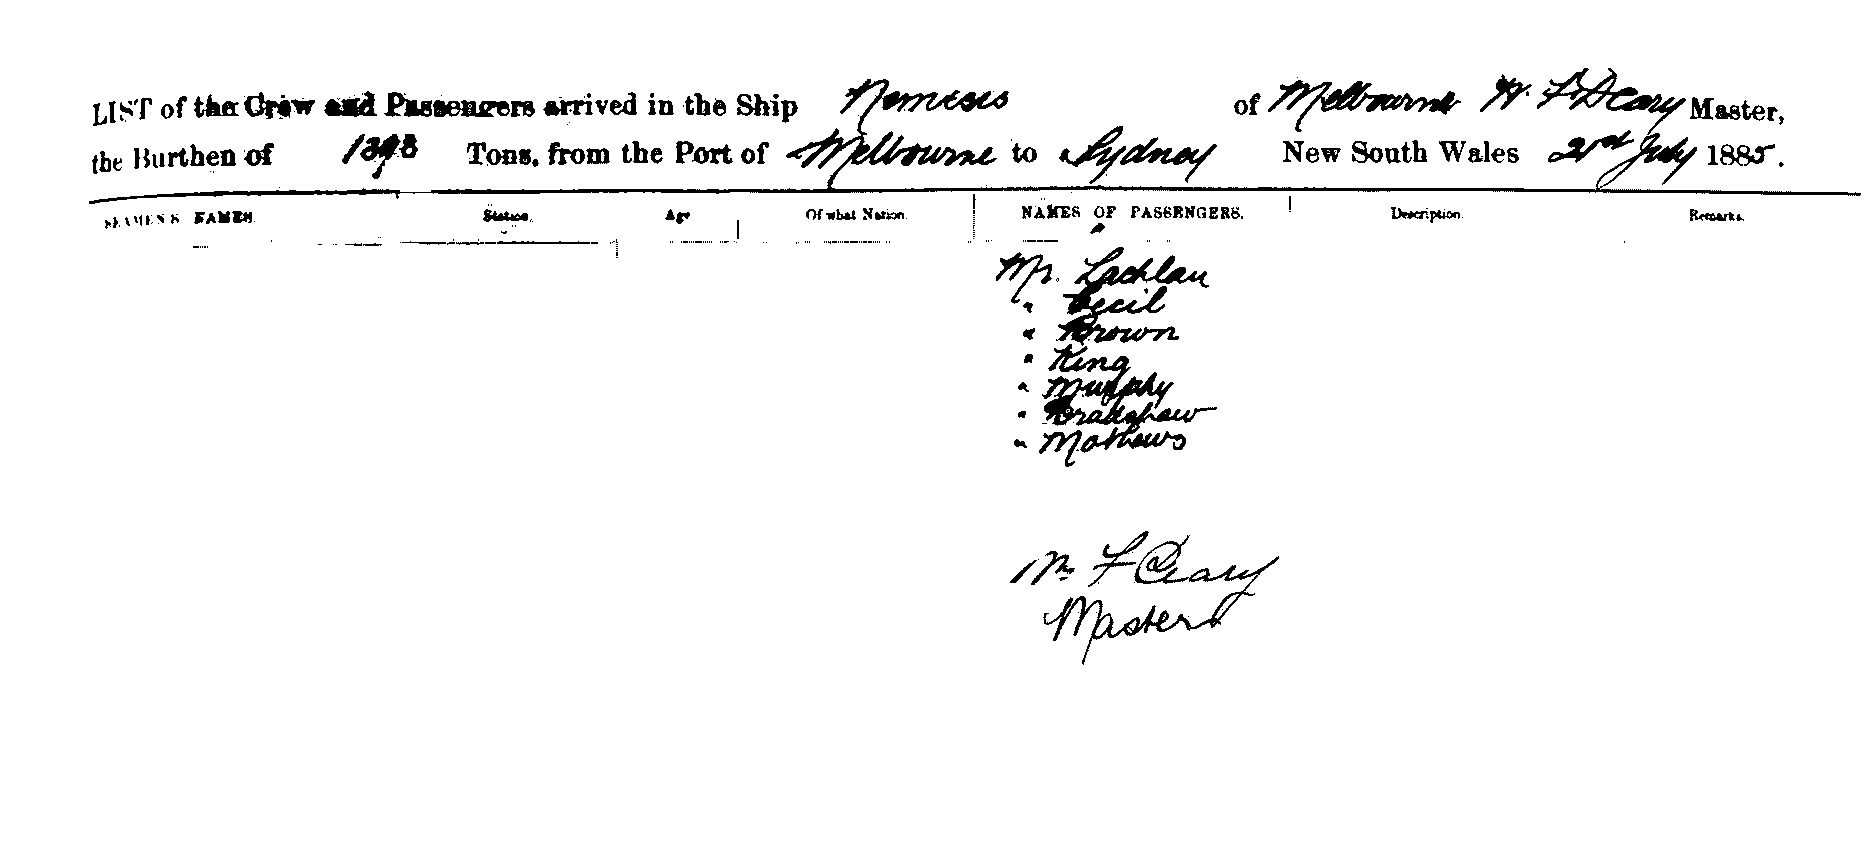 LIST of the Crew and Passengers arrived in the Ship Nemesis of Melbourne W. F. Deary Master,
the Burthen of 1393 Tons, from the Port of Melbourne to Sydney New South Wales 21st July 1885.
SEAMEN'S NAMES. Station. Age Of what Nation. NAMES OF PASSENGERS. Description. Remarks.
Mr. Lachlan
" Cecil
" Brown
" King
" Murphy
" Bradshaw
" Mathews
Wm F Deary
Master